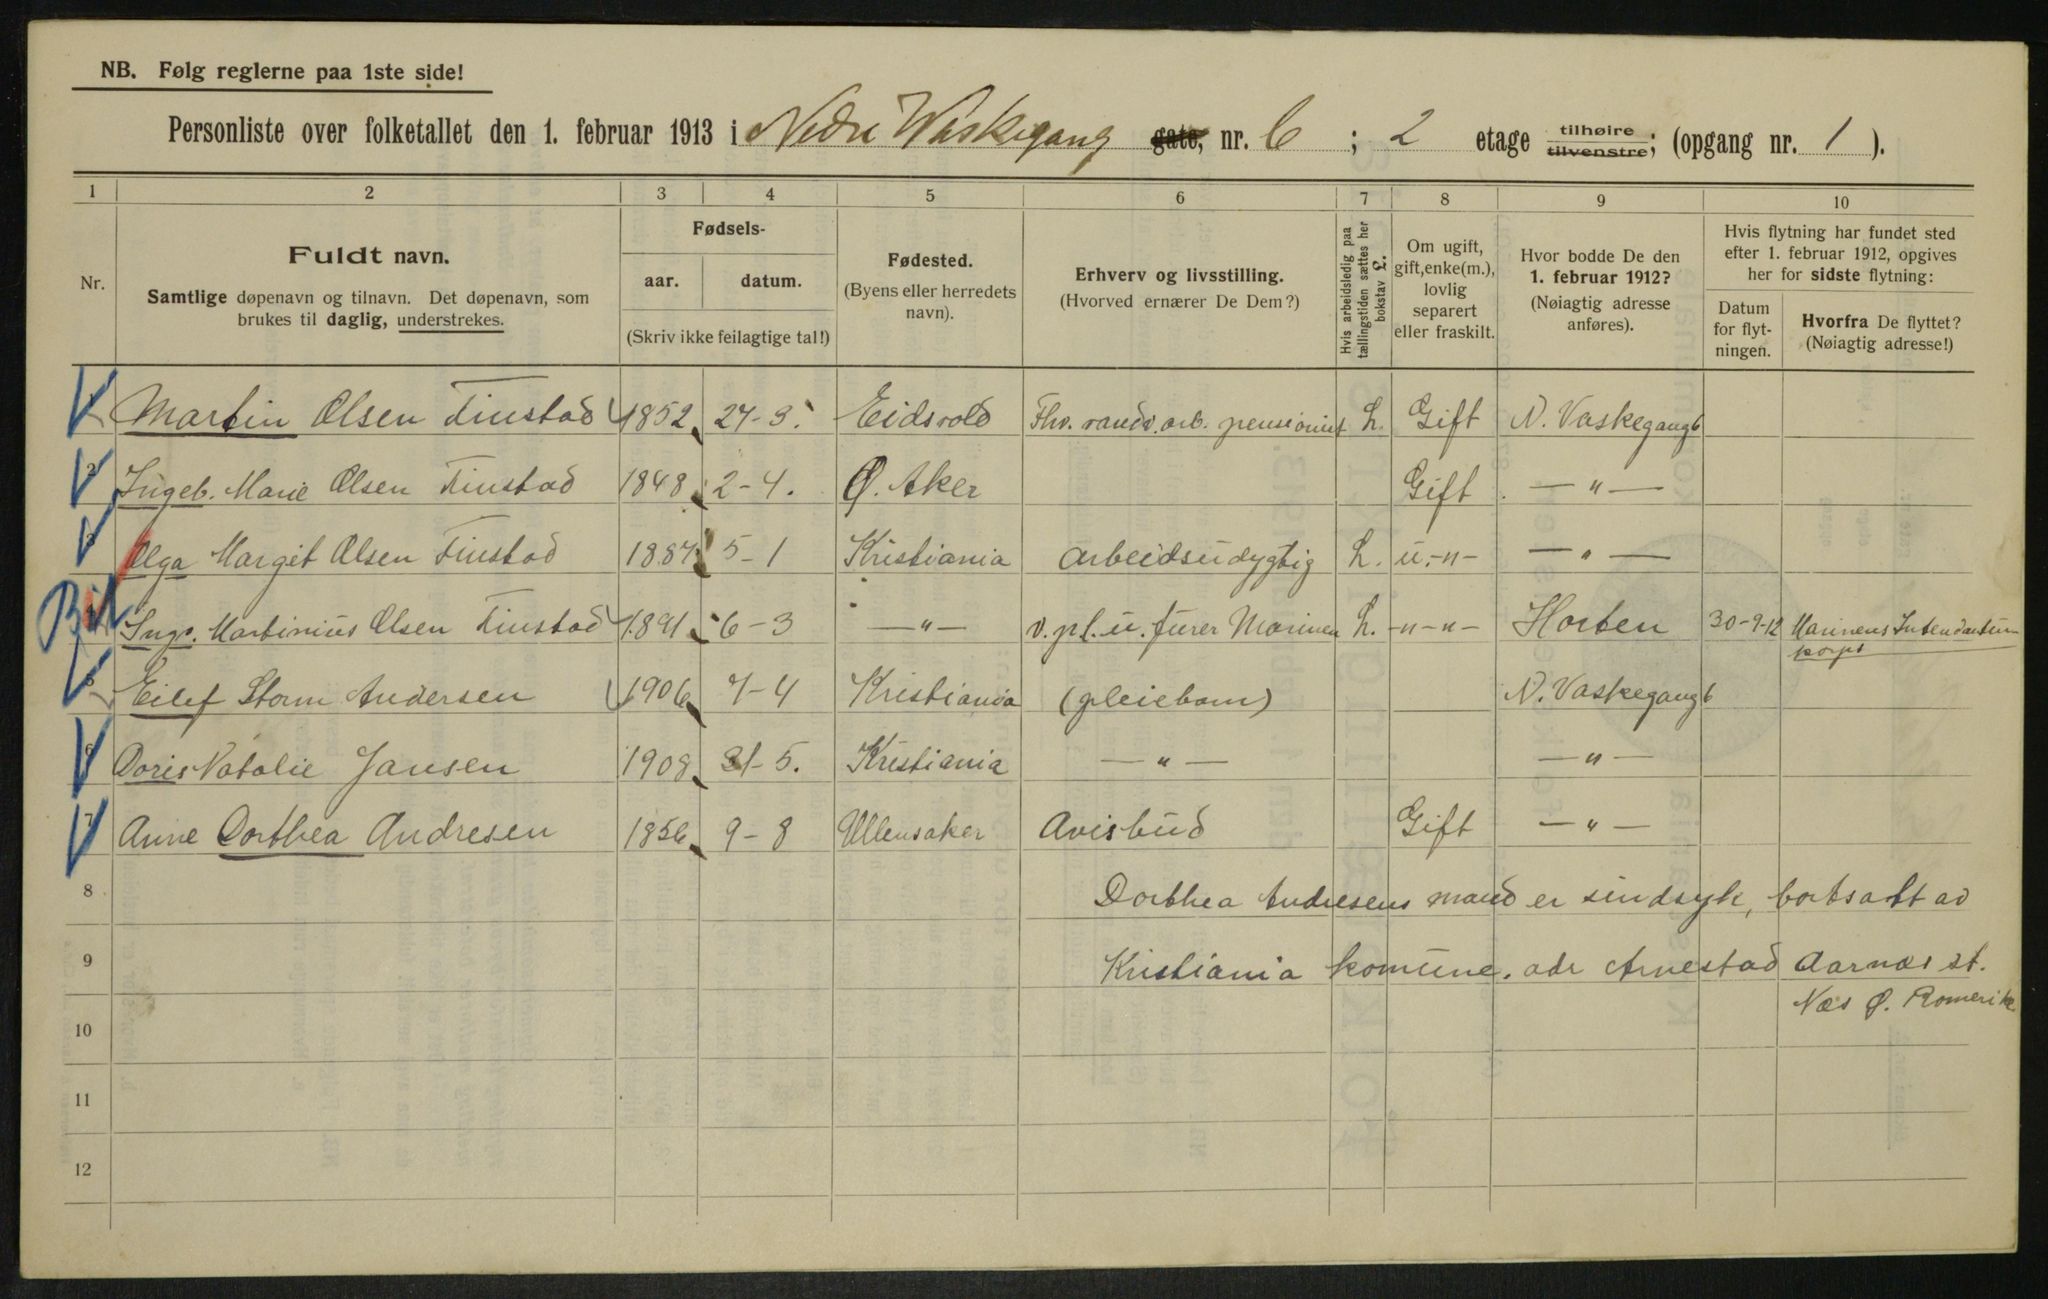 NB. Følg reglerne paa 1ste side!
Personliste over folketallet den 1. februar 1913 i Nedre Waskegang gate, nr. 6 ; 2 etage tilhøire tilvenstre; (opgang nr. 1 ).
1 2 3 4 5 6 7 8 9 10
Nr. Fuldt navn. Samtlige døpenavn og tilnavn. Det døpenavn, som brukes til daglig, understrekes.
Fødsels- aar. datum. (Skriv ikke feilagtige tal!)
Fødested. (Byens eller herredets navn).
Erhverv og livsstilling. (Hvorved ernærer De Dem?)
Hvis arbeidsledig paa tællingstiden sættes her bokstav £.
Om ugift, gift, enke(m.), lovlig separert eller fraskilt.
Hvor bodde De den 1. februar 1912? (Nøiagtig adresse anføres).
Hvis flytning har fundet sted efter 1. februar 1912, opgives her for sidste flytning:
Datum for flytningen. Hvorfra De flyttet? (Nøiagtig adresse!)
Martin Olsen Finstad 1852 27-3. Eidsvold Fhv. arb. pensionist L. Gift N. Vaskegang 6
2 Ingeb. Marie Olsen Finstad 1848 2-4. Ø. Aker Gift —"—
3 Olga Margit Olsen Finstad 1887 5-1 Kristiania arbeidsudygtig L. u.-"- —"—
Ingv. Martinius Olsen Finstad 1891 6-3 —"— v.pl.u. furer Marinen L. -"-"- Horten 30-9-12 Marinens Intendantur korps
5 Eilef Storm Andersen 1906 7-4 Kristiania (pleiebarn) N. Vaskegang 6
6 Doris Natalie Jansen 1908 31-5. Kristiania —"— —"—
7 Anne Dorthea Andresen 1856 9-8 Ullensaker Avisbud Gift —"—
8 Dorthea Andresens mand er sindsyk, bortsatt av
9 Kristiania komune. adr Arnestad Aarnæs st.
10 Næs Ø. Romerike
11
12